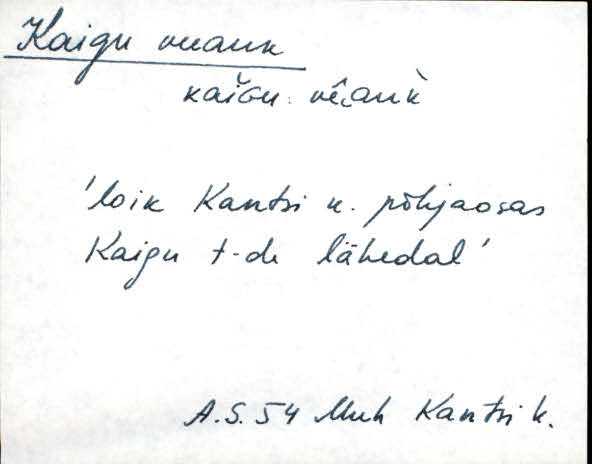 Kaigu veank
kaĭGu: vê̬ank̀
'loik Kantsi k. põhjaosas
Kaigu t-de lähedal'
A.S. 54 Muh Kantsi k.